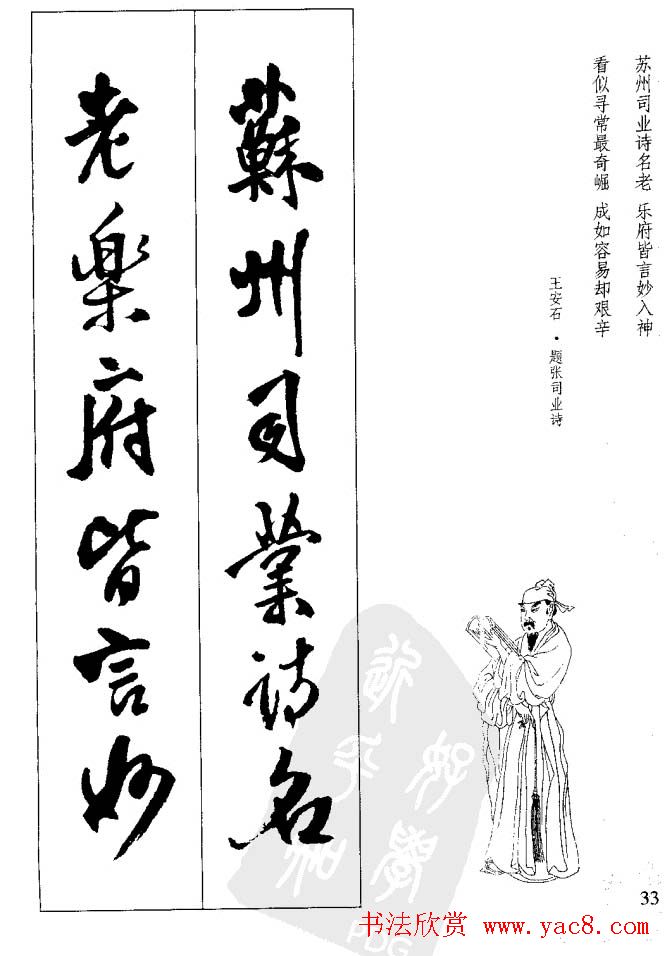 苏州司业诗名老 乐府皆言妙入神
看似寻常最奇崛 成如容易却艰辛
王安石·题张司业诗
蘇州司業詩名
老楽府皆言妙
PDG
33
书法欣赏 www.yac8.com